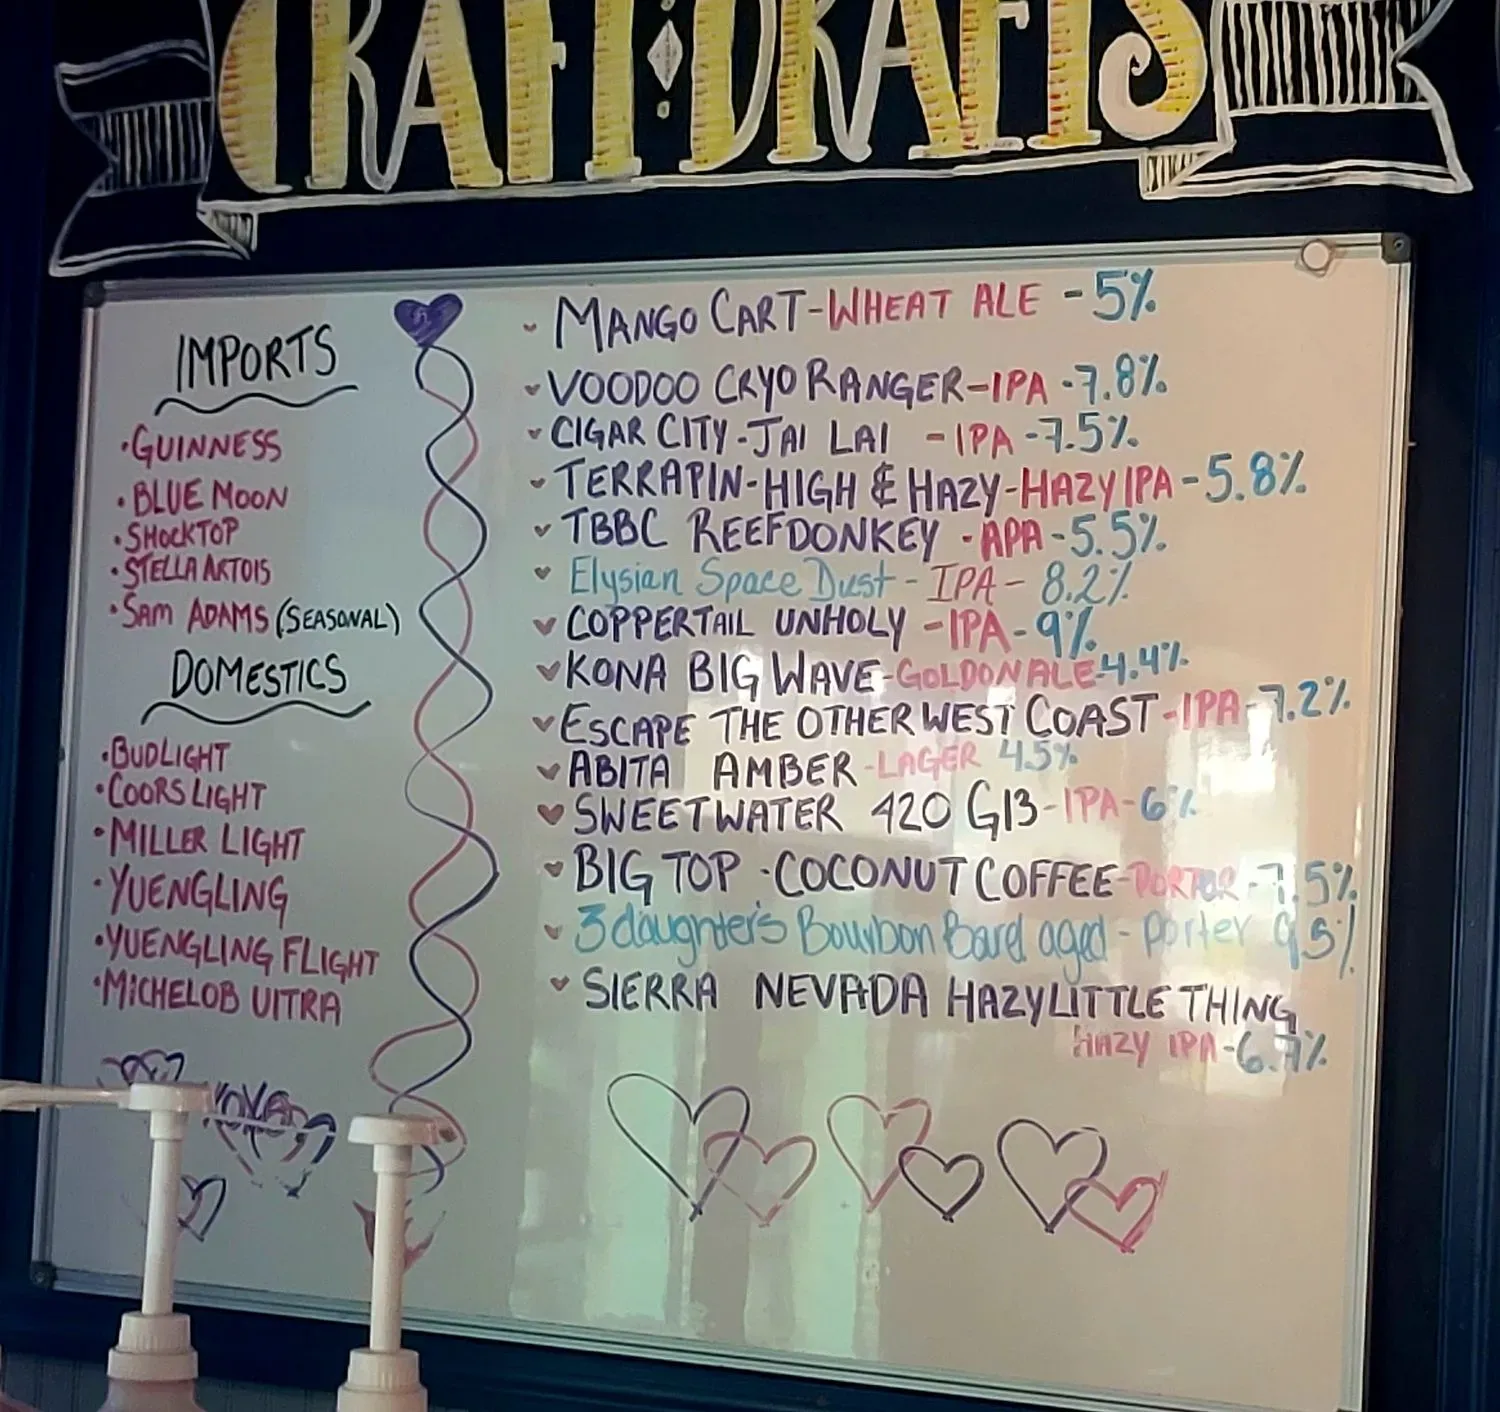 CRAFT DRAFTS
IMPORTS
•GUINNESS
•BLUE MOON
•SHOCKTOP
•STELLA ARTOIS
•SAM ADAMS (SEASONAL)
DOMESTICS
•BUDLIGHT
•COORS LIGHT
•MILLER LIGHT
•YUENGLING
•YUENGLING FLIGHT
•MICHELOB UITRA
MANGO CART-WHEAT ALE -5%
VOODOO CRYO RANGER-IPA -7.8%
CIGAR CITY-JAI LAI -IPA -7.5%
TERRAPIN-HIGH & HAZY-HAZY IPA-5.8%
TBBC REEFDONKEY -APA-5.5%
Elysian Space Dust - IPA - 8.2%
COPPERTAIL UNHOLY -IPA-9%
KONA BIG WAVE-GOLDON ALE-4.4%
ESCAPE THE OTHER WEST COAST-IPA-7.2%
ABITA AMBER-LAGER 4.5%
SWEETWATER 420 G13-IPA-6%
BIG TOP -COCONUT COFFEE-PORTOR-7.5%
3 daughter's Bourbon Barel aged - porter 9.5%
SIERRA NEVADA HAZY LITTLE THING
HAZY IPA-6.7%